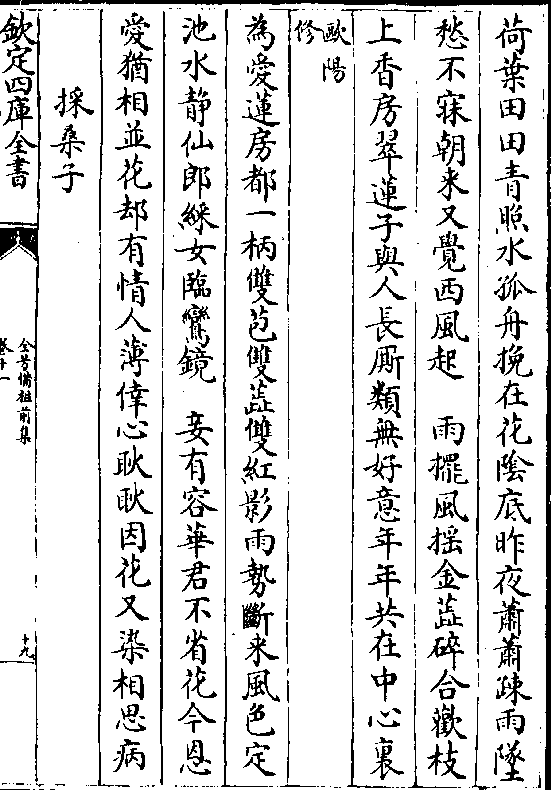 荷葉田田青照水孤舟挽在花陰底昨夜蕭蕭疎雨墜
愁不寐朝来又覺西風起　雨擺風揺金蕋碎合歡枝
上香房翠蓮子與人長厮類無好意年年共在中心裏
歐陽
修
為愛蓮房都一柄雙苞雙蕋雙紅影雨勢斷来風色定
池水静仙郎綵女臨鸞鏡　妾有容華君不省花今恩
愛猶相並花却有情人薄倖心耿耿因花又染相思病
採桑子
欽定四庫全書
全芳備祖前集
卷十一
十九